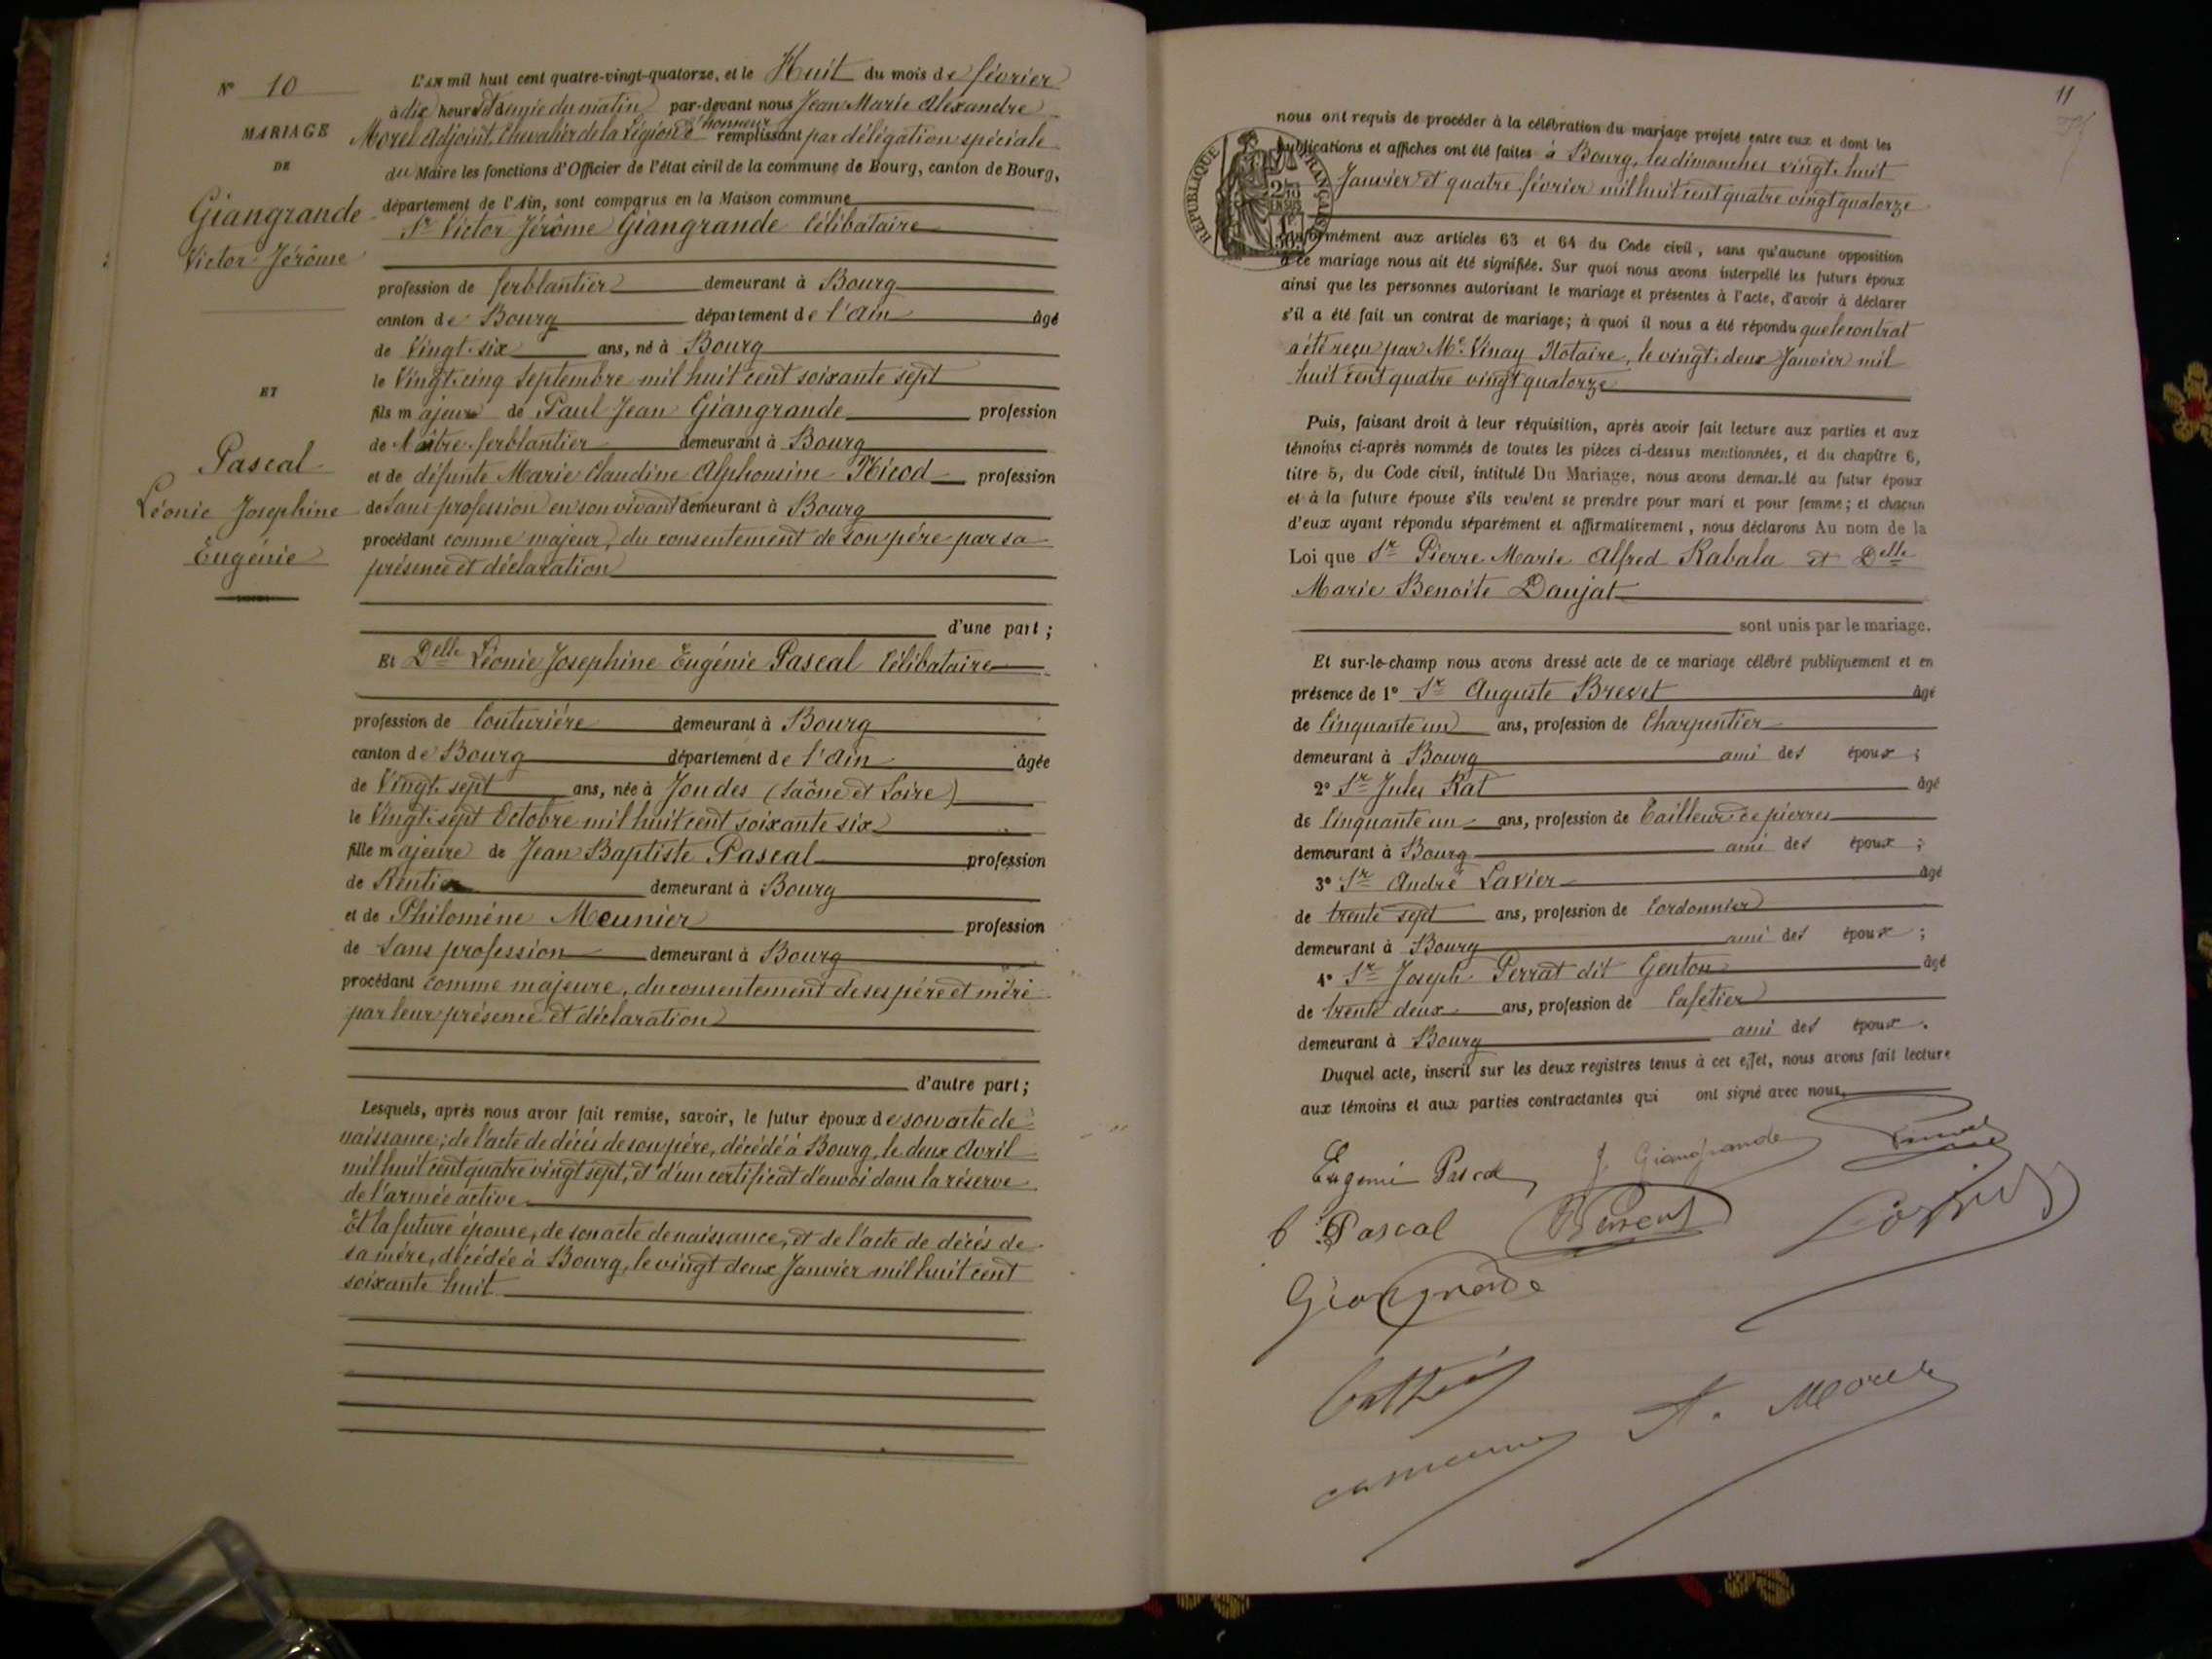 N° 10
MARIAGE
DE
Giangrande
Victor Jérôme
ET
Pascal
Léonie Josephine
Eugénie
L'AN mil huit cent quatre-vingt-quatorze, et le Huit du mois de février
à dix heures et demie du matin par-devant nous Jean Marie Alexandre
Morel Adjoint, Chevalier de la Légion d'honneur remplissant par délégation spéciale
du Maire les fonctions d'Officier de l'état civil de la commune de Bourg, canton de Bourg,
département de l'Ain, sont comparus en la Maison commune
Sr Victor Jérôme Giangrande Célibataire
profession de ferblantier demeurant à Bourg
canton de Bourg département de l'Ain âgé
de Vingt-six ans, né à Bourg
le Vingt-cinq Septembre mil huit cent soixante sept
fils majeur de Paul Jean Giangrande profession
de Maître ferblantier demeurant à Bourg
et de défunte Marie Claudine Alphonsine Nicod profession
de Sans profession en son vivant demeurant à Bourg
procédant comme majeur, du consentement de son père par sa
présence et déclaration
d'une part ;
Et Delle Léonie Josephine Eugénie Pascal Célibataire
profession de Couturière demeurant à Bourg
canton de Bourg département de l'Ain âgée
de Vingt-sept ans, née à Joudes (Saône et Loire)
le Vingt-sept Octobre mil huit cent soixante six
fille majeure de Jean Baptiste Pascal profession
de Rentier demeurant à Bourg
et de Philomène Meunier profession
de Sans profession demeurant à Bourg
procédant comme majeure, du consentement de ses père et mère
par leur présence et déclaration
d'autre part ;
Lesquels, après nous avoir fait remise, savoir, le futur époux de son acte de
naissance ; de l'acte de décès de son père, décédé à Bourg, le deux Avril
mil huit cent quatre vingt sept, et d'un certificat d'envoi dans la réserve
de l'armée active
Et la future épouse, de son acte de naissance, et de l'acte de décès de
sa mère, décédée à Bourg, le vingt deux Janvier mil huit cent
soixante huit
11
nous ont requis de procéder à la célébration du mariage projeté entre eux et dont les
publications et affiches ont été faites à Bourg, les dimanches vingt-huit
Janvier et quatre février mil huit cent quatre vingt quatorze
RÉPUBLIQUE FRANÇAISE
conformément aux articles 63 et 64 du Code civil, sans qu'aucune opposition
à ce mariage nous ait été signifiée. Sur quoi nous avons interpellé les futurs époux
ainsi que les personnes autorisant le mariage et présentes à l'acte, d'avoir à déclarer
s'il a été fait un contrat de mariage ; à quoi il nous a été répondu que le contrat
a été reçu par Me Vinay Notaire, le vingt-deux Janvier mil
huit cent quatre vingt quatorze
Puis, faisant droit à leur réquisition, après avoir fait lecture aux parties et aux
témoins ci-après nommés de toutes les pièces ci-dessus mentionnées, et du chapitre 6,
titre 5, du Code civil, intitulé Du Mariage, nous avons demandé au futur époux
et à la future épouse s'ils veulent se prendre pour mari et pour femme ; et chacun
d'eux ayant répondu séparément et affirmativement, nous déclarons Au nom de la
Loi que Sr Pierre Marie Alfred Rabala et Delle
Marie Benoite Daujat
sont unis par le mariage.
Et sur-le-champ nous avons dressé acte de ce mariage célébré publiquement et en
présence de 1° Sr Auguste Brevet âgé
de Cinquante un ans, profession de Charpentier
demeurant à Bourg ami des époux ;
2° Sr Jules Rat âgé
de Cinquante un ans, profession de Tailleur de pierres
demeurant à Bourg ami des époux ;
3° Sr André Lavier âgé
de trente sept ans, profession de Cordonnier
demeurant à Bourg ami des époux ;
4° Sr Joseph Perrat dit Genton âgé
de trente deux ans, profession de Cafetier
demeurant à Bourg ami des époux.
Duquel acte, inscrit sur les deux registres tenus à cet effet, nous avons fait lecture
aux témoins et aux parties contractantes qui ont signé avec nous.
Eugenie Pascal J. Giangrande
Pascal
Giangrande
A. Morel